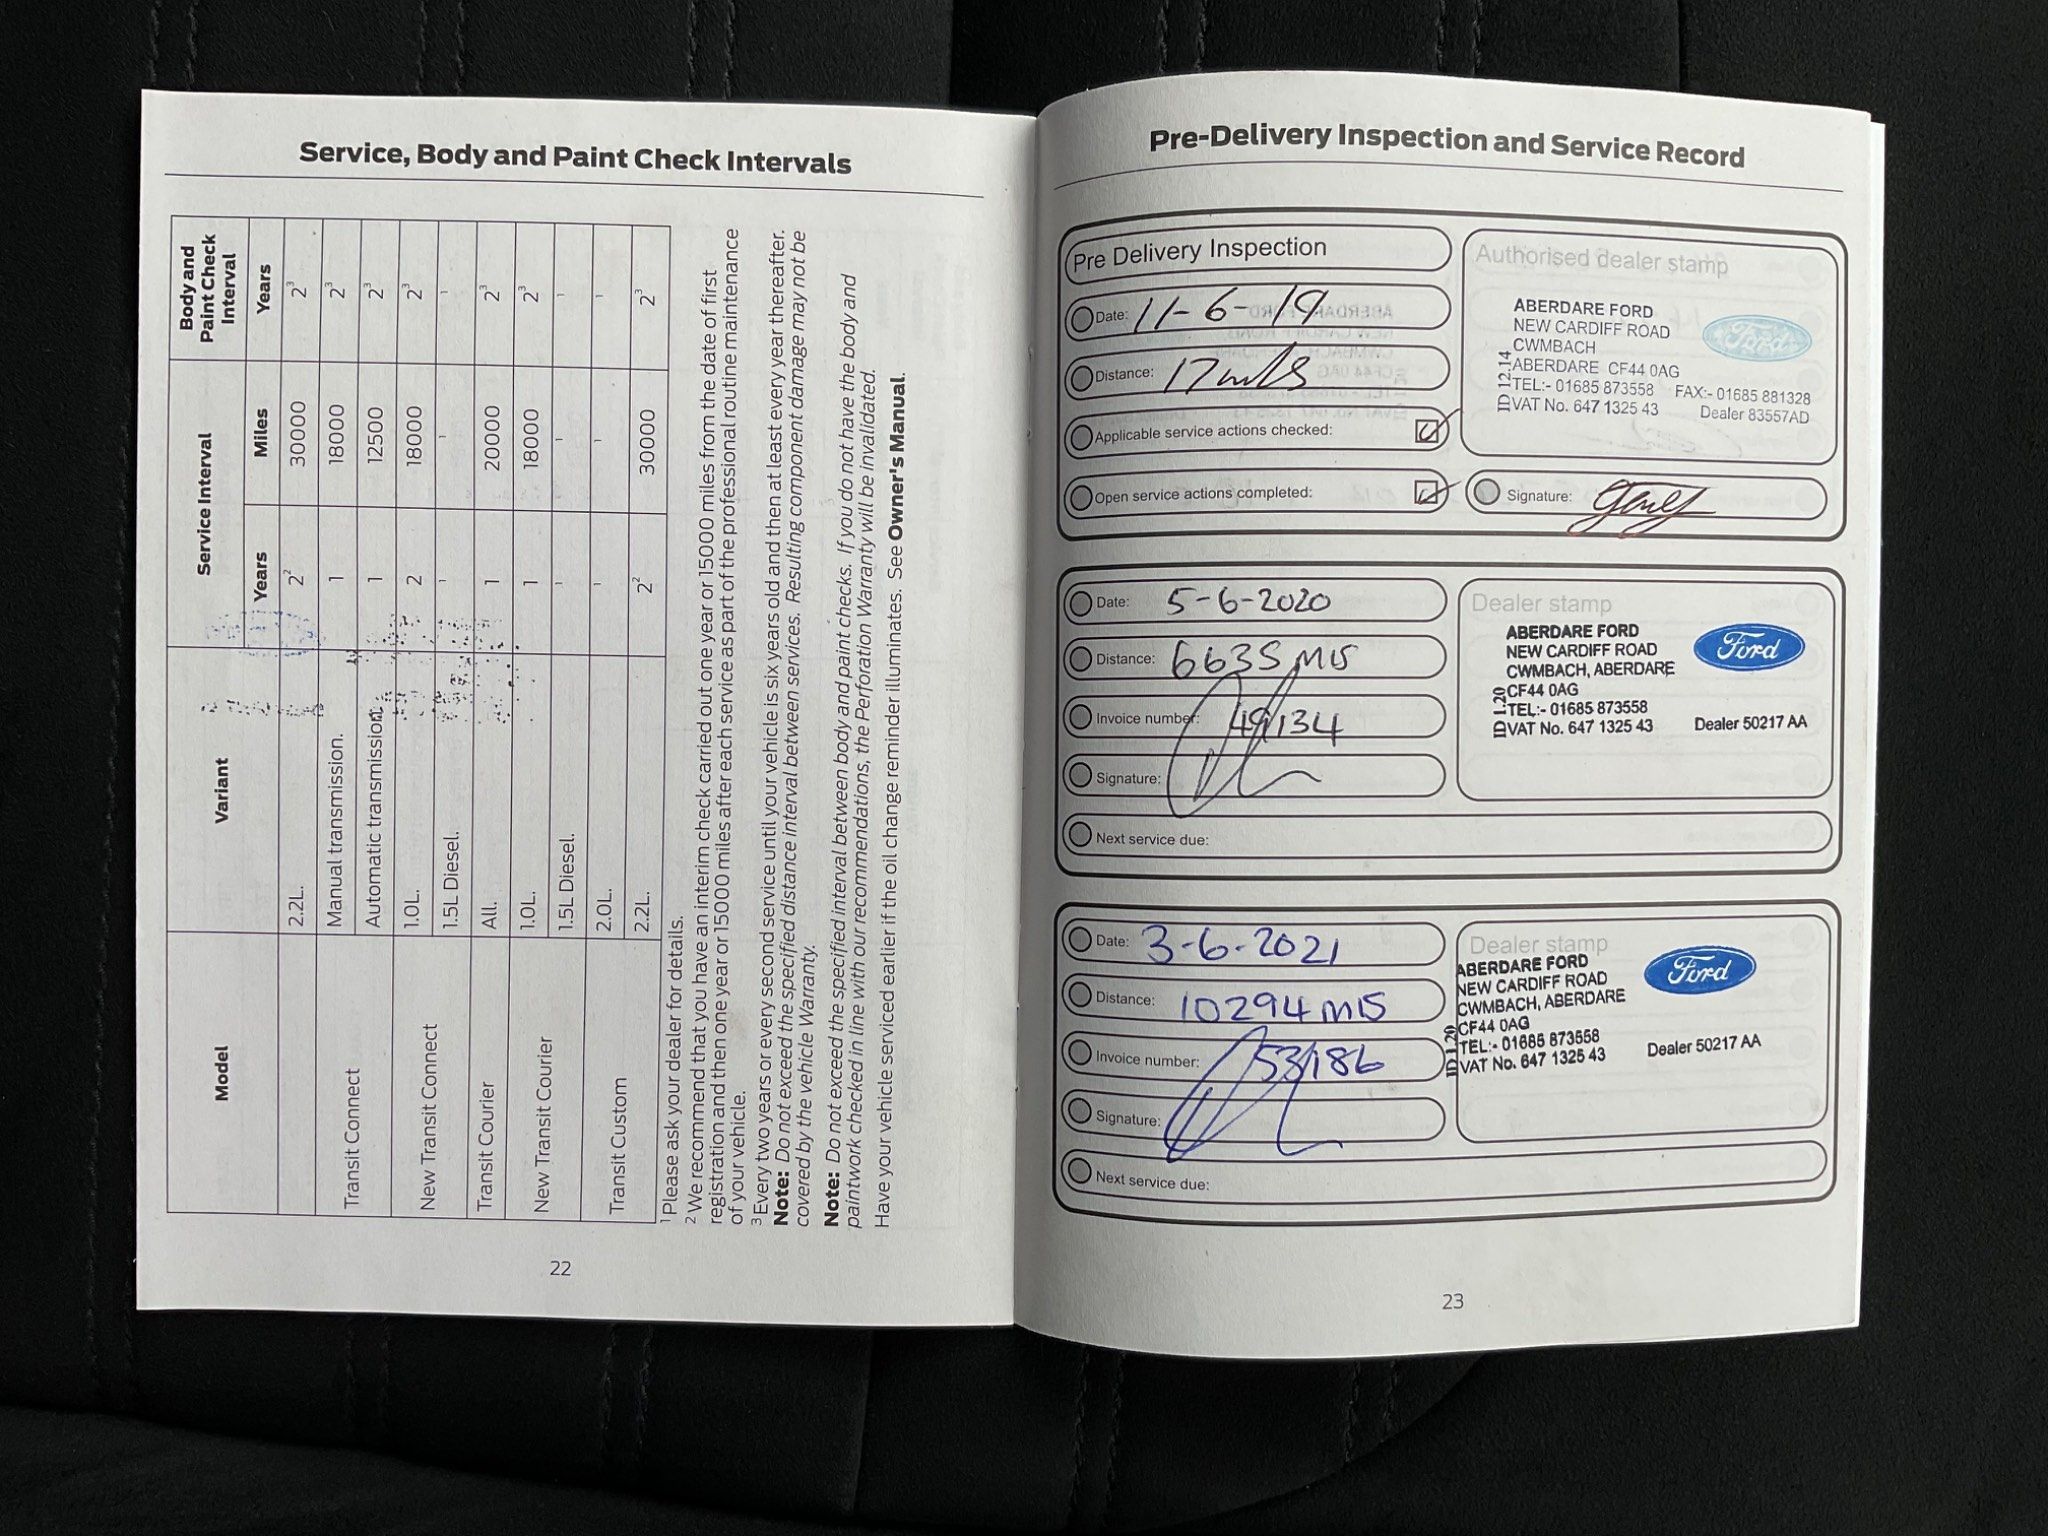 Service, Body and Paint Check Intervals
Model Variant Service Interval Body and Paint Check Interval
Years Miles Years
2.2L. 2² 30000 2³
Transit Connect Manual transmission. 1 18000 2³
Automatic transmission. 1 12500 2³
New Transit Connect 1.0L. 2 18000 2³
1.5L Diesel. ¹ ¹ ¹
Transit Courier All. 1 20000 2³
New Transit Courier 1.0L. 1 18000 2³
1.5L Diesel. ¹ ¹ ¹
Transit Custom 2.0L. ¹ ¹ ¹
2.2L. 2² 30000 2³
¹ Please ask your dealer for details.
² We recommend that you have an interim check carried out one year or 15000 miles from the date of first
registration and then one year or 15000 miles after each service as part of the professional routine maintenance
of your vehicle.
³ Every two years or every second service until your vehicle is six years old and then at least every year thereafter.
Note: Do not exceed the specified distance interval between services. Resulting component damage may not be
covered by the vehicle Warranty.
Note: Do not exceed the specified interval between body and paint checks. If you do not have the body and
paintwork checked in line with our recommendations, the Perforation Warranty will be invalidated.
Have your vehicle serviced earlier if the oil change reminder illuminates. See Owner's Manual.
22
Pre-Delivery Inspection and Service Record
Pre Delivery Inspection
Date: 11-6-19
Distance: 17 mls
Applicable service actions checked:
Open service actions completed:
Authorised dealer stamp
ABERDARE FORD
NEW CARDIFF ROAD
CWMBACH
ABERDARE CF44 0AG
TEL:- 01685 873558 FAX:- 01685 881328
VAT No. 647 1325 43 Dealer 83557AD
ID 12.14
Ford
Signature:
Date: 5-6-2020
Distance: 6635 MIS
Invoice number: 49134
Signature:
Next service due:
Dealer stamp
ABERDARE FORD
NEW CARDIFF ROAD
CWMBACH, ABERDARE
CF44 0AG
TEL:- 01685 873558
VAT No. 647 1325 43 Dealer 50217 AA
ID 1.20
Ford
Date: 3-6-2021
Distance: 10294 MIS
Invoice number: 53186
Signature:
Next service due:
Dealer stamp
ABERDARE FORD
NEW CARDIFF ROAD
CWMBACH, ABERDARE
CF44 0AG
TEL:- 01685 873558
VAT No. 647 1325 43 Dealer 50217 AA
ID 1.20
Ford
23